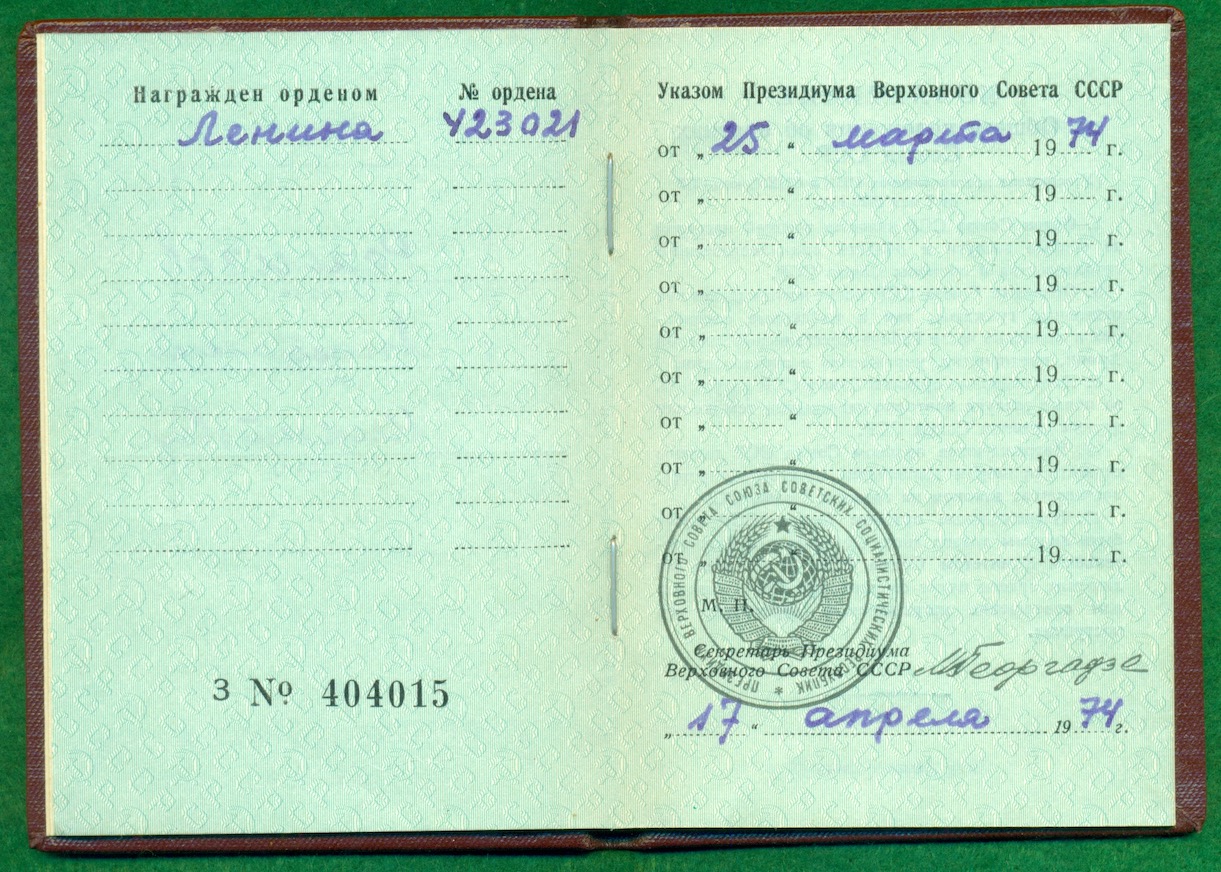 Награжден орденом
№ ордена
Ленина
423021
З № 404015
Указом Президиума Верховного Совета СССР
от „ 25 “ марта 19 74 г.
от „ “ 19 г.
от „ “ 19 г.
от „ “ 19 г.
от „ “ 19 г.
от „ “ 19 г.
от „ “ 19 г.
от „ “ 19 г.
от „ “ 19 г.
от „ “ 19 г.
ПРЕЗИДИУМ ВЕРХОВНОГО СОВЕТА СОЮЗА СОВЕТСКИХ СОЦИАЛИСТИЧЕСКИХ РЕСПУБЛИК
М. П.
Секретарь Президиума
Верховного Совета СССР МГеоргадзе
„ 17 “ апреля 19 74 г.